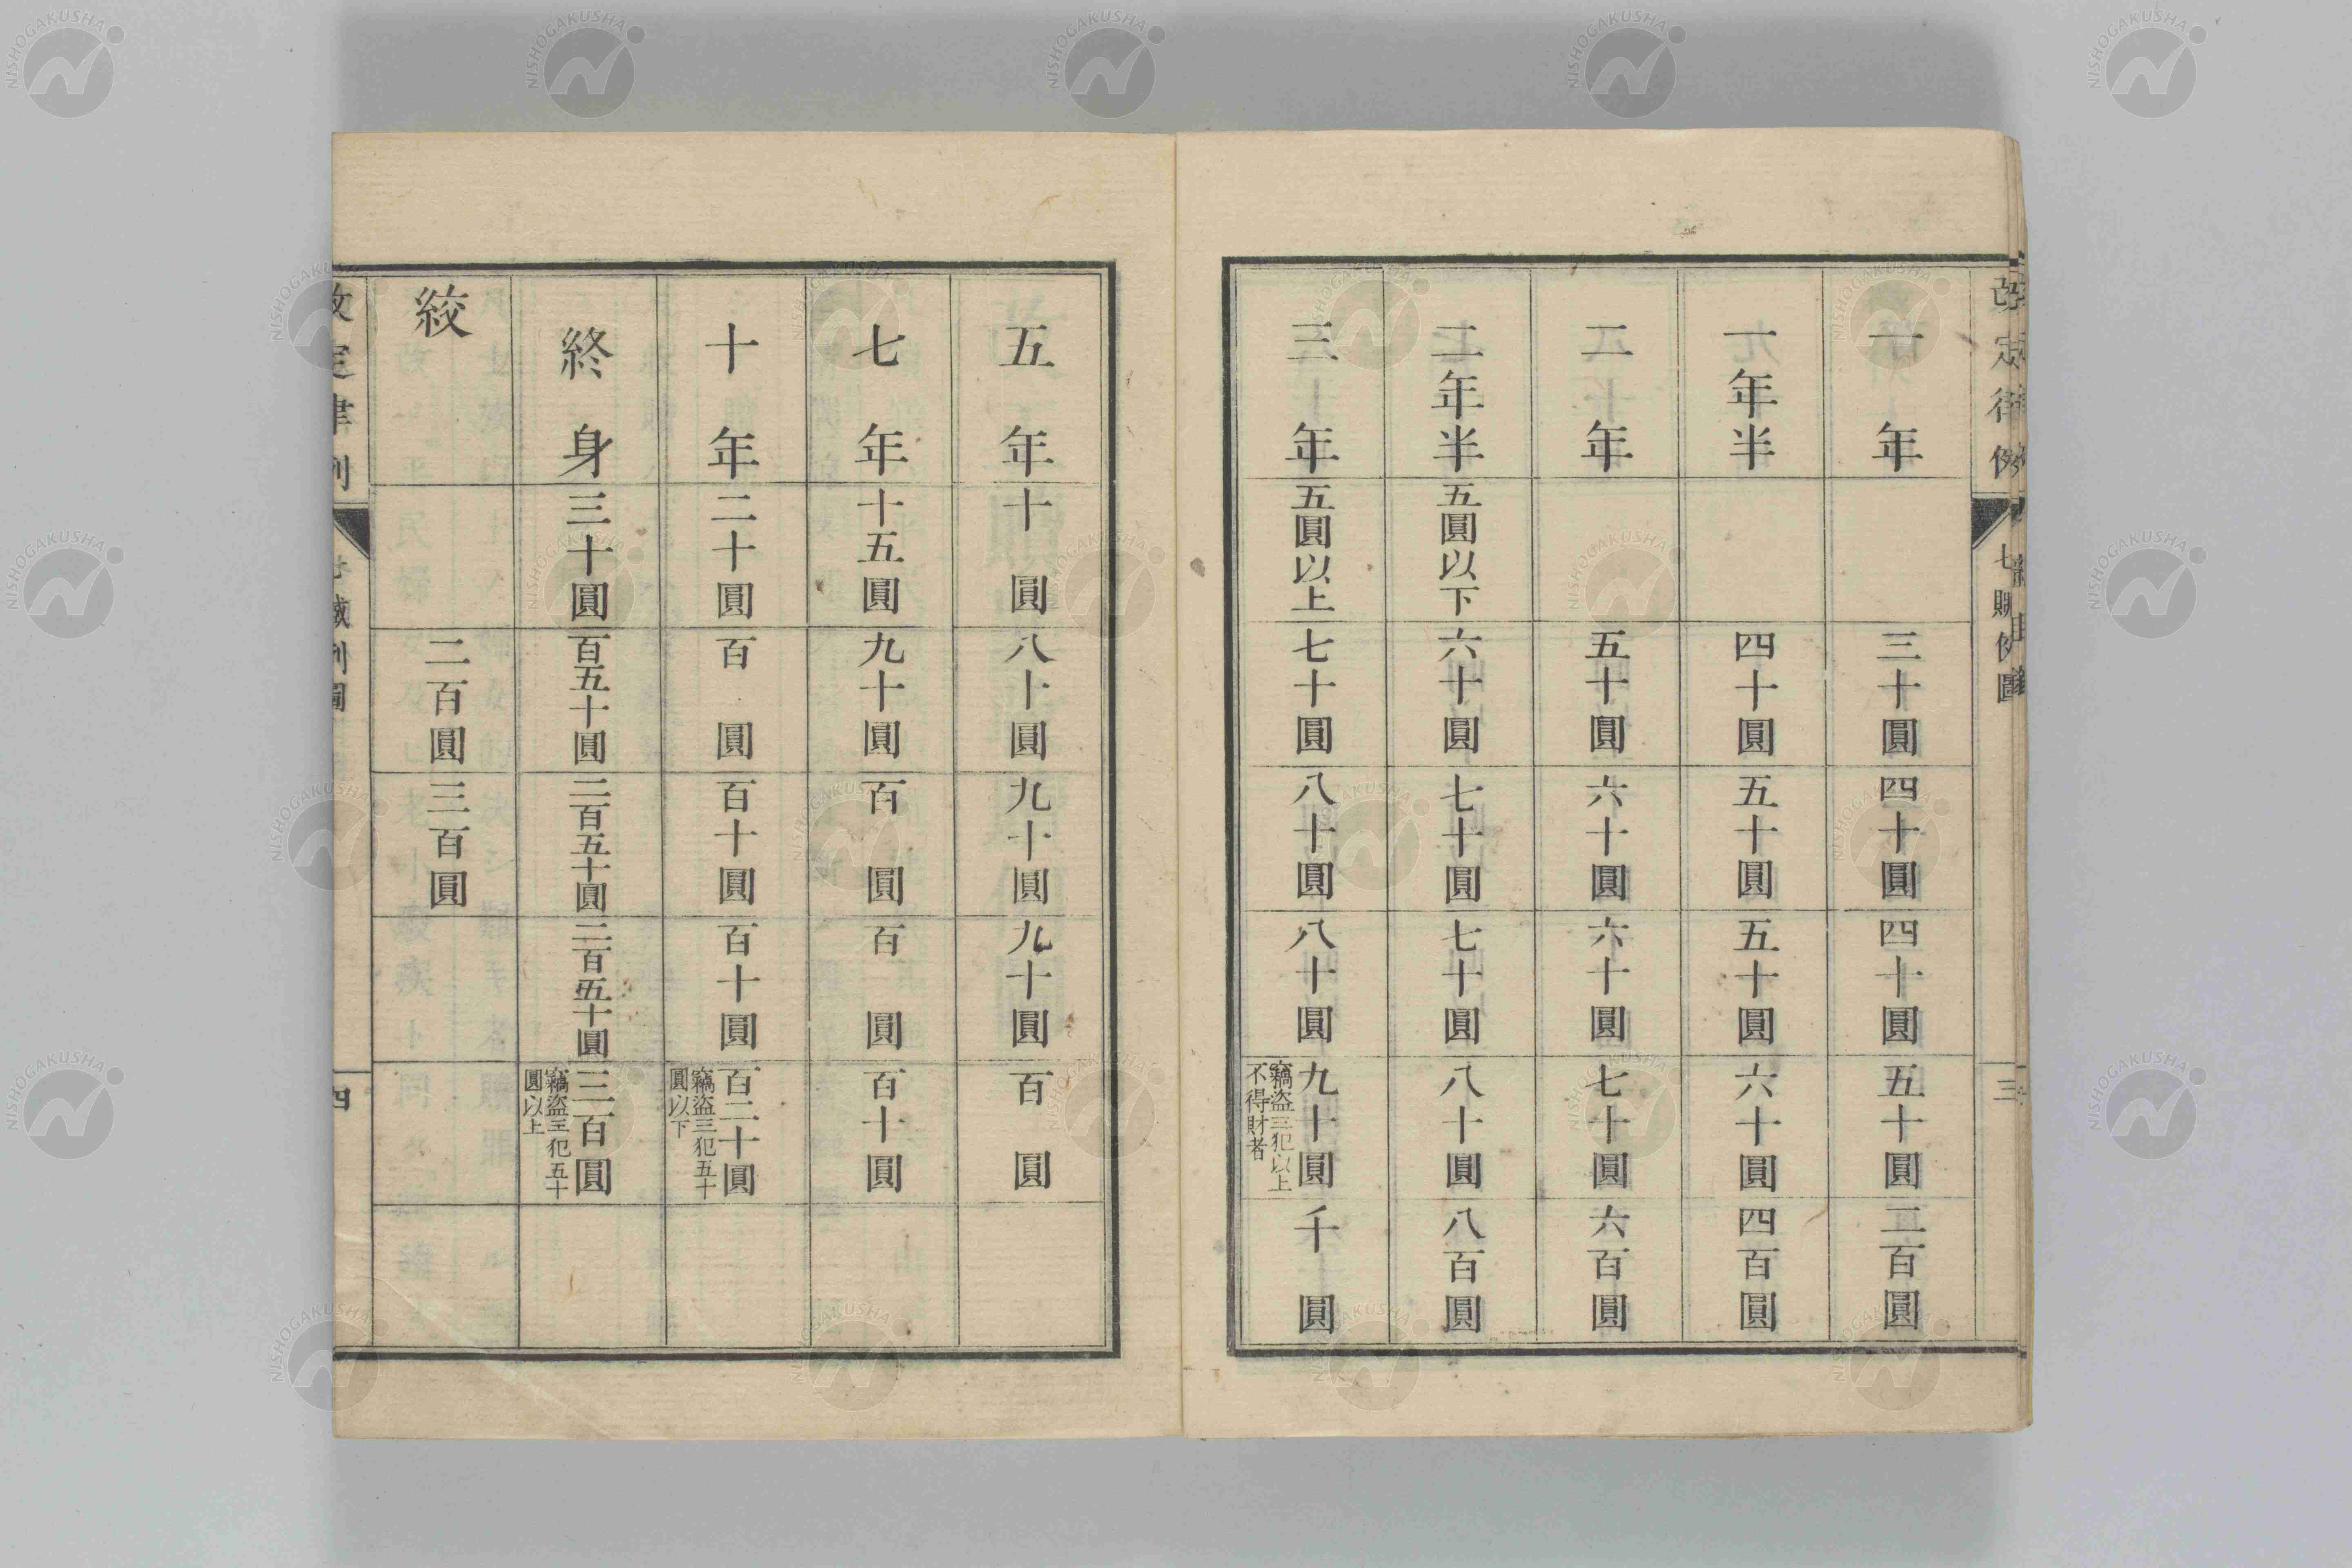 改定律例
七贓例圖
三
一年
三十圓
四十圓
四十圓
五十圓
二百圓
一年半
四十圓
五十圓
五十圓
六十圓
四百圓
二年
五十圓
六十圓
六十圓
七十圓
六百圓
二年半
五圓以下
六十圓
七十圓
七十圓
八十圓
八百圓
三年
五圓以上
七十圓
八十圓
八十圓
九十圓
竊盜三犯以上
不得財者
千圓
五年
十圓
八十圓
九十圓
九十圓
百圓
七年
十五圓
九十圓
百圓
百圓
百十圓
十年
二十圓
百圓
百十圓
百十圓
百二十圓
竊盜三犯五十
圓以下
終身
三十圓
百五十圓
二百五十圓
二百五十圓
三百圓
竊盜三犯五十
圓以上
絞
二百圓
三百圓
改定律例
四
NISHOGAKUSHA